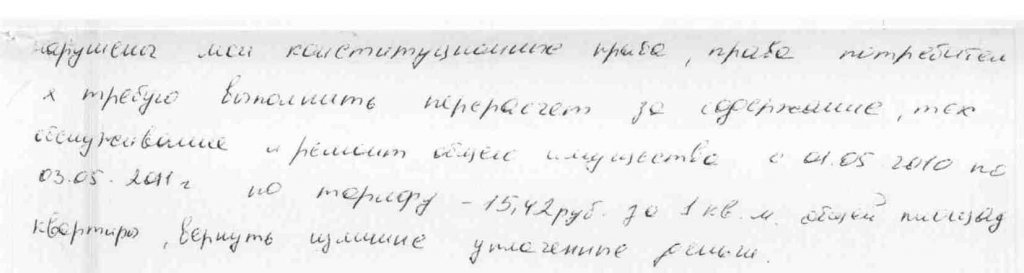 нарушены мои конституционные права, права потребител
я требую выполнить перерасчет за содержание, тех
обслуживание и ремонт общего имущества с 01.05 2010 по
03.05.2011 г по тарифу - 15,42 руб. за 1 кв.м. общей площад
квартиры, вернуть излишне уплаченные деньги.